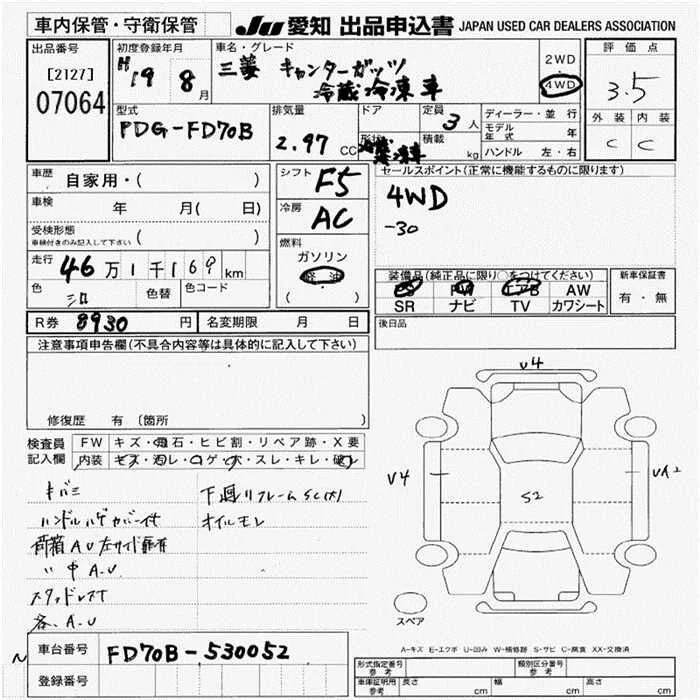 車内保管・守衛保管
JU 愛知 出品申込書 JAPAN USED CAR DEALERS ASSOCIATION
出品番号
[2127]
07064
初度登録年月
H19 8月
車名・グレード
三菱 キャンターガッツ
冷蔵冷凍車
2WD
4WD
評価点
3.5
外装 内装
C C
型式
PDG-FD70B
排気量
2.97 CC
ドア
形状
冷蔵冷凍車
定員
3人
積載
kg
ディーラー・並行
モデル年式 年
ハンドル 左・右
車歴 自家用・( )
車検 年 月( 日)
受検形態
車検付きのみ記入して下さい ( )
走行 46万1千169km
色 シロ 色替 色コード
シフト F5
冷房 AC
燃料
ガソリン
( )
セールスポイント(正常に機能するものに限ります)
4WD
-30
装備品(純正品に限り○をつけてください)
PS PW エアB AW
SR ナビ TV カワシート
新車保証書
有・無
R券 8930円 名変期限 月 日
後日品
注意事項申告欄(不具合内容等は具体的に記入して下さい)
修復歴 有 〔箇所 〕
検査員記入欄
FW キズ・飛石・ヒビ割・リペア跡・X要
内装 キズ・汚レ・コゲ・穴・スレ・キレ・破レ
キバミ
ハンドルハゲ カバー付
荷箱AU 左サイド
〃 中 A.U
スタッドレス
各、A.U
下廻りフレームSC(大)
オイルモレ
V4
V4
UA2
S2
スペア
A-キズ E-エクボ U-凹み W-補修跡 S-サビ C-腐食 XX-交換済
車台番号 FD70B-530052
登録番号
形式指定番号 参考
類別区分番号 参考
車庫証明用 参考 長さ cm 幅 cm 高さ cm